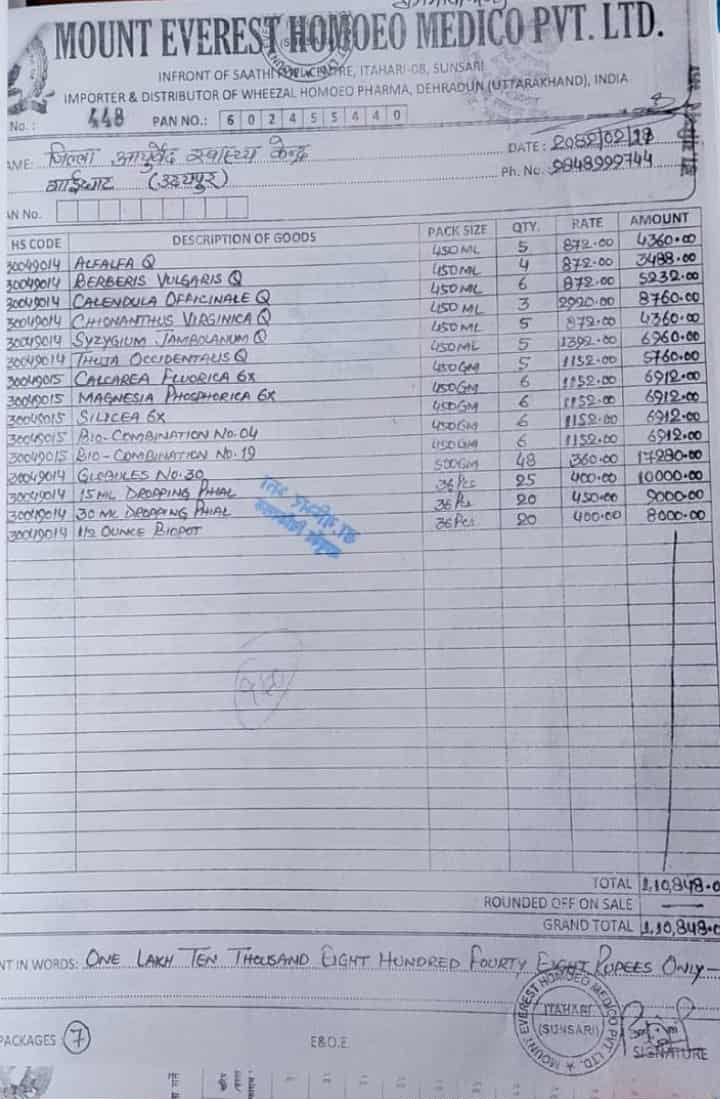 MOUNT EVEREST HOMOEO MEDICO PVT. LTD.
INFRONT OF SAATHI PALACE, ITAHARI-08, SUNSARI
IMPORTER & DISTRIBUTOR OF WHEEZAL HOMOEO PHARMA, DEHRADUN (UTTARAKHAND), INDIA
No.: 448 PAN NO.: 602455440
AME: जिल्ला आयुर्वेद स्वास्थ्य केन्द्र DATE: 2082/02/
गाईघाट (उदयपुर) Ph. No. 9848999744
AN No.
HS CODE DESCRIPTION OF GOODS PACK SIZE QTY. RATE AMOUNT
30049014 ALFALFA Q 450 ML 5 872.00 4360.00
30049014 BERBERIS VULGARIS Q 450 ML 4 872.00 3488.00
30049014 CALENDULA OFFICINALE Q 450 ML 6 872.00 5232.00
30049014 CHIONANTHUS VIRGINICA Q 450 ML 3 2920.00 8760.00
30049014 SYZYGIUM JAMBOLANUM Q 450 ML 5 872.00 4360.00
30049014 THUJA OCCIDENTALIS Q 450 ML 5 1392.00 6960.00
30049015 CALCAREA FLUORICA 6X 450 GM 5 1152.00 5760.00
30049015 MAGNESIA PHOSPHORICA 6X 450 GM 6 1152.00 6912.00
30049015 SILICEA 6X 450 GM 6 1152.00 6912.00
30049015 BIO-COMBINATION NO. 04 450 GM 6 1152.00 6912.00
30049015 BIO-COMBINATION NO. 19 450 GM 6 1152.00 6912.00
30049014 GLOBULES NO. 30 500 GM 48 360.00 17280.00
30049014 15 ML DROPPING PHIAL 36 Pcs 25 400.00 10000.00
30049014 30 ML DROPPING PHIAL 36 Pcs 20 450.00 9000.00
30049014 1/2 OUNCE BIOPOT 36 Pcs 20 400.00 8000.00
TOTAL 1,10,848.0
ROUNDED OFF ON SALE —
GRAND TOTAL 1,10,848.0
NT IN WORDS: ONE LAKH TEN THOUSAND EIGHT HUNDRED FOURTY EIGHT RUPEES ONLY-
MOUNT EVEREST HOMOEO MEDICO PVT. LTD.
ITAHARI
(SUNSARI)
PACKAGES: 7 E&O.E. SIGNATURE